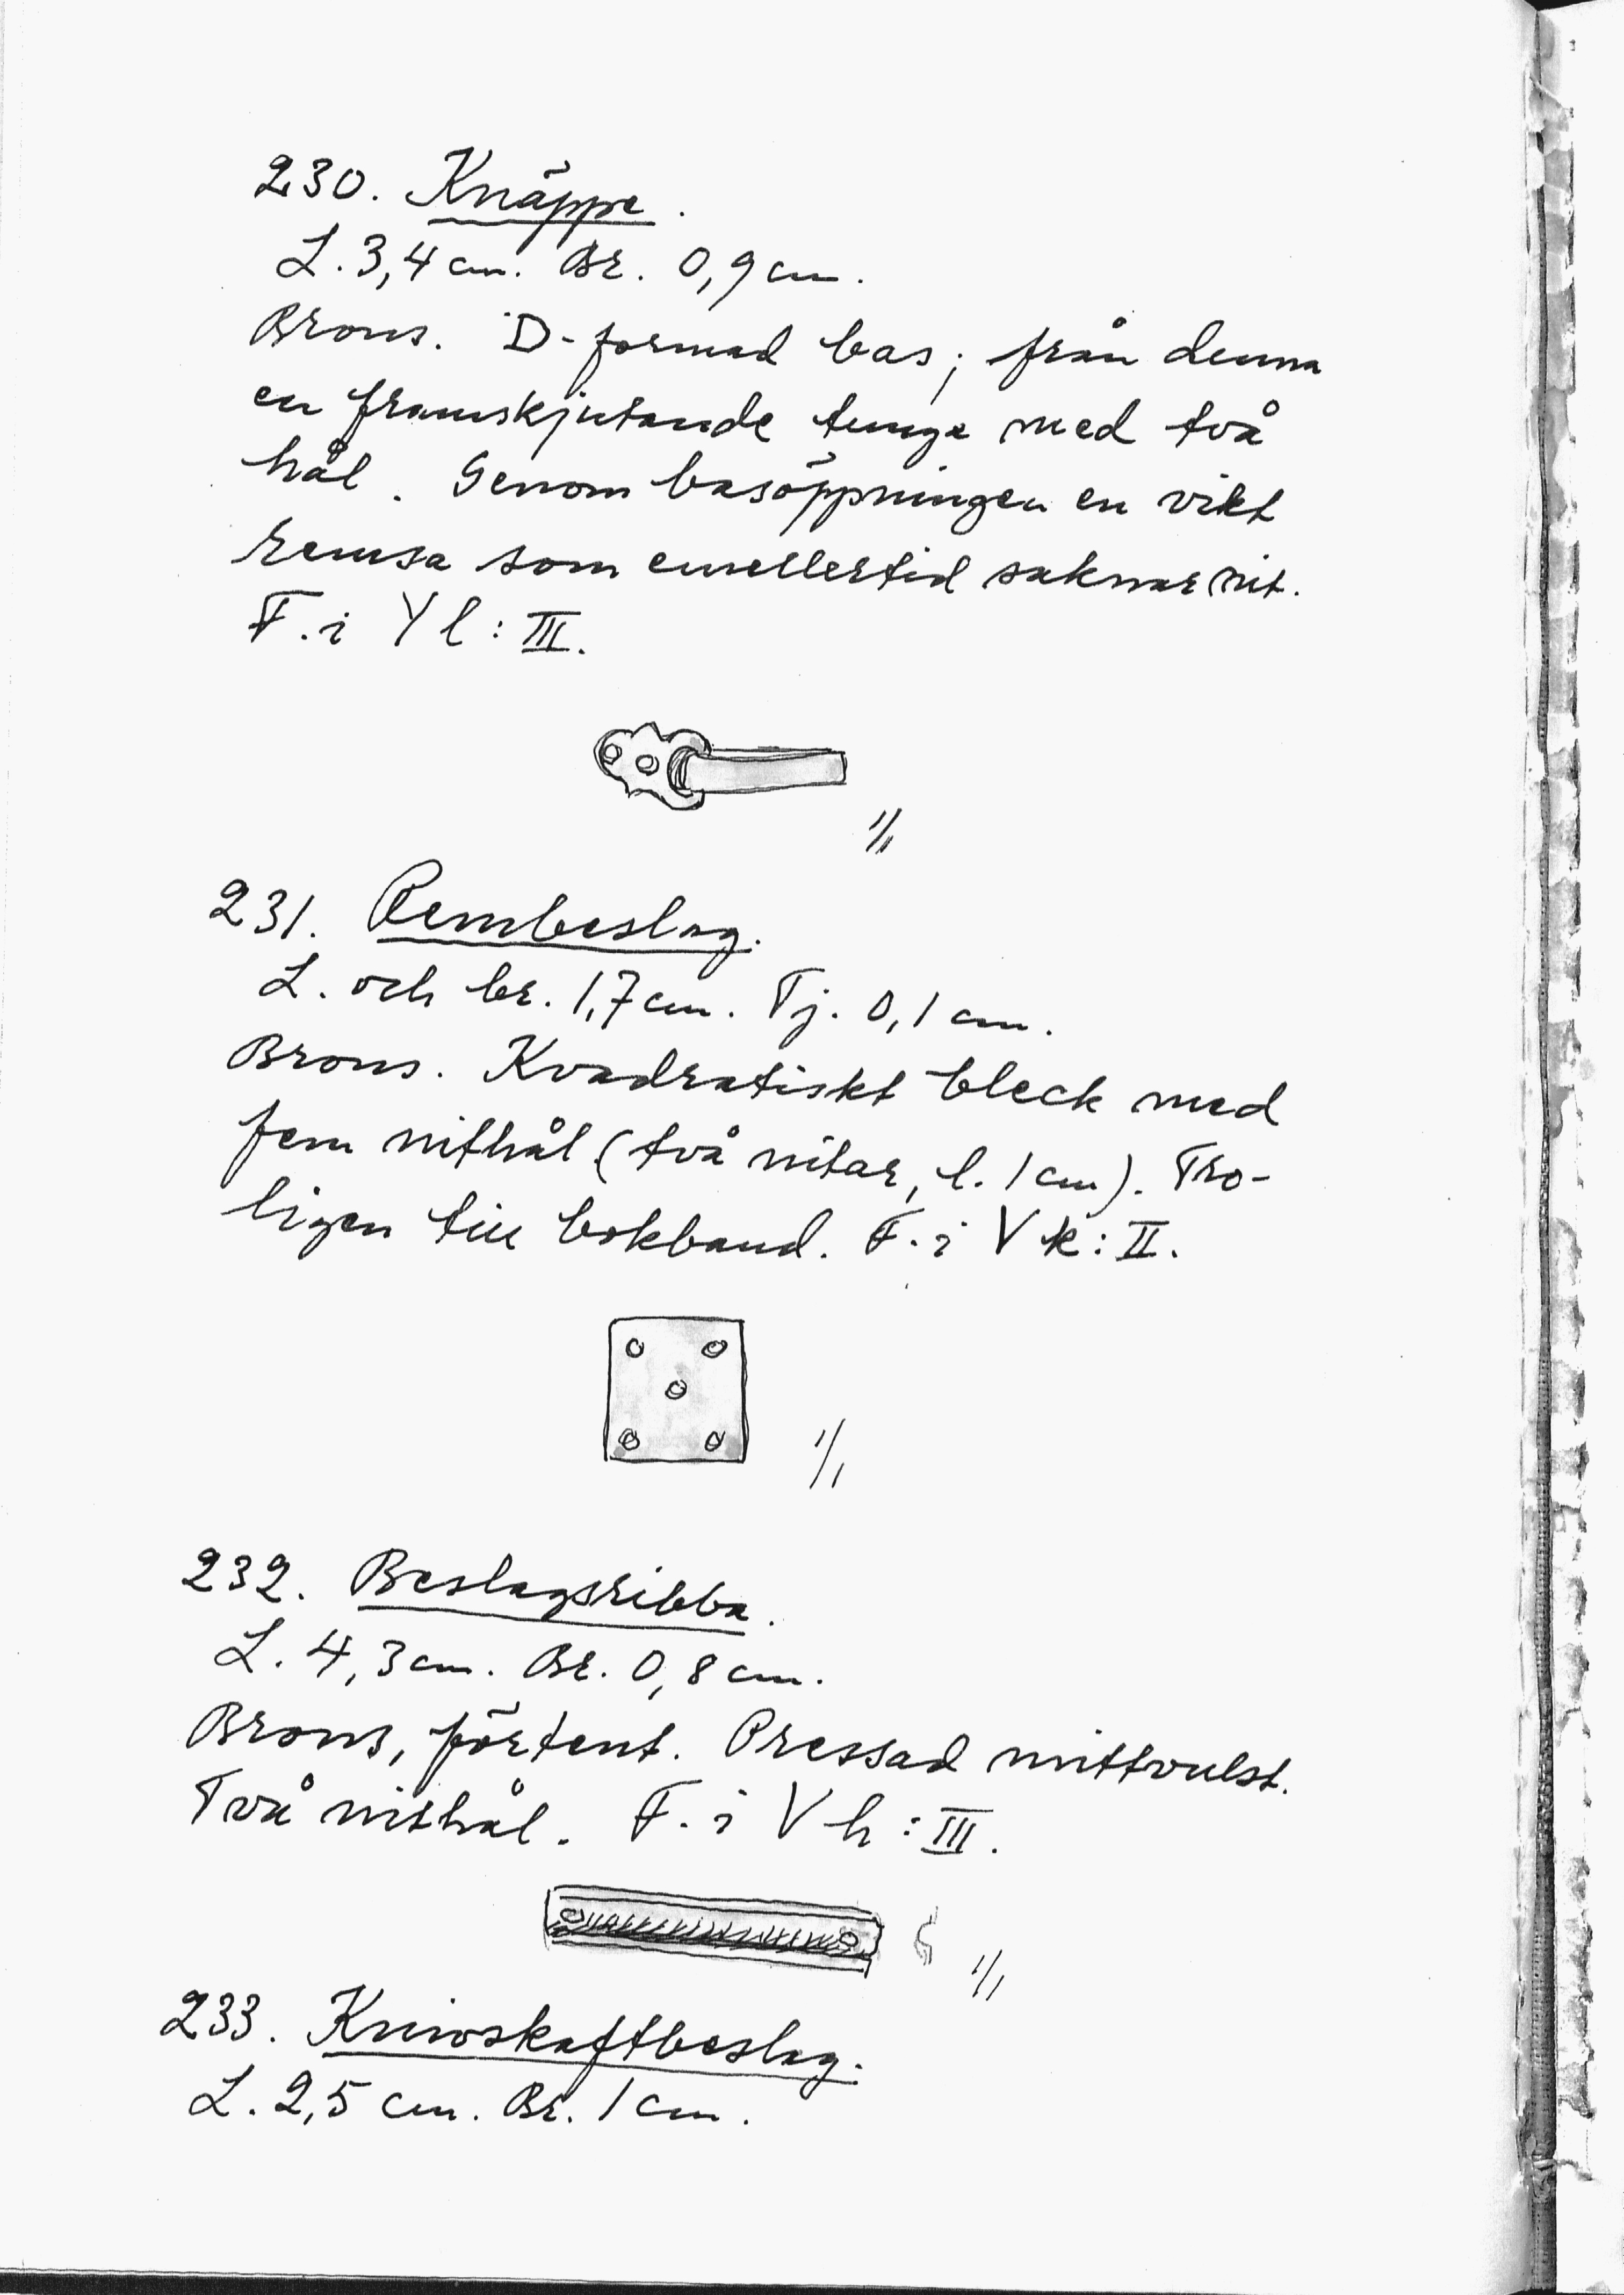 230. Knäppe.
L. 3,4 cm. Br. 0,9 cm.
Brons. D-formad bas; från denna
en framskjutande tunga med två
hål. Genom basöppningen en vikt
remsa som emellertid saknar nit.
F. i Y l : III.
1/1
231. Rembeslag.
L. och br. 1,7 cm. Tj. 0,1 cm.
Brons. Kvadratiskt bleck med
fem nithål (två nitar, l. 1 cm). Tro-
ligen till bokband. F. i V k : II.
1/1
232. Beslagsribba.
L. 4,3 cm. Br. 0,8 cm.
Brons, förtent. Pressad mittvulst.
Två nithål. F. i V h : III.
1/1
233. Knivskaftbeslag.
L. 2,5 cm. Br. 1 cm.